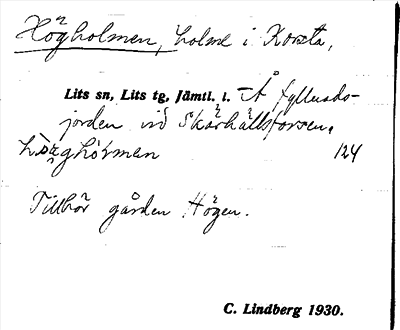 Högholmen, holme i Korsta,
Lits sn, Lits tg, Jämtl. l. Å fyllnads-
jorden vid Skårhällsforsen.
124
Tillhör gården Högen.
C. Lindberg 1930.